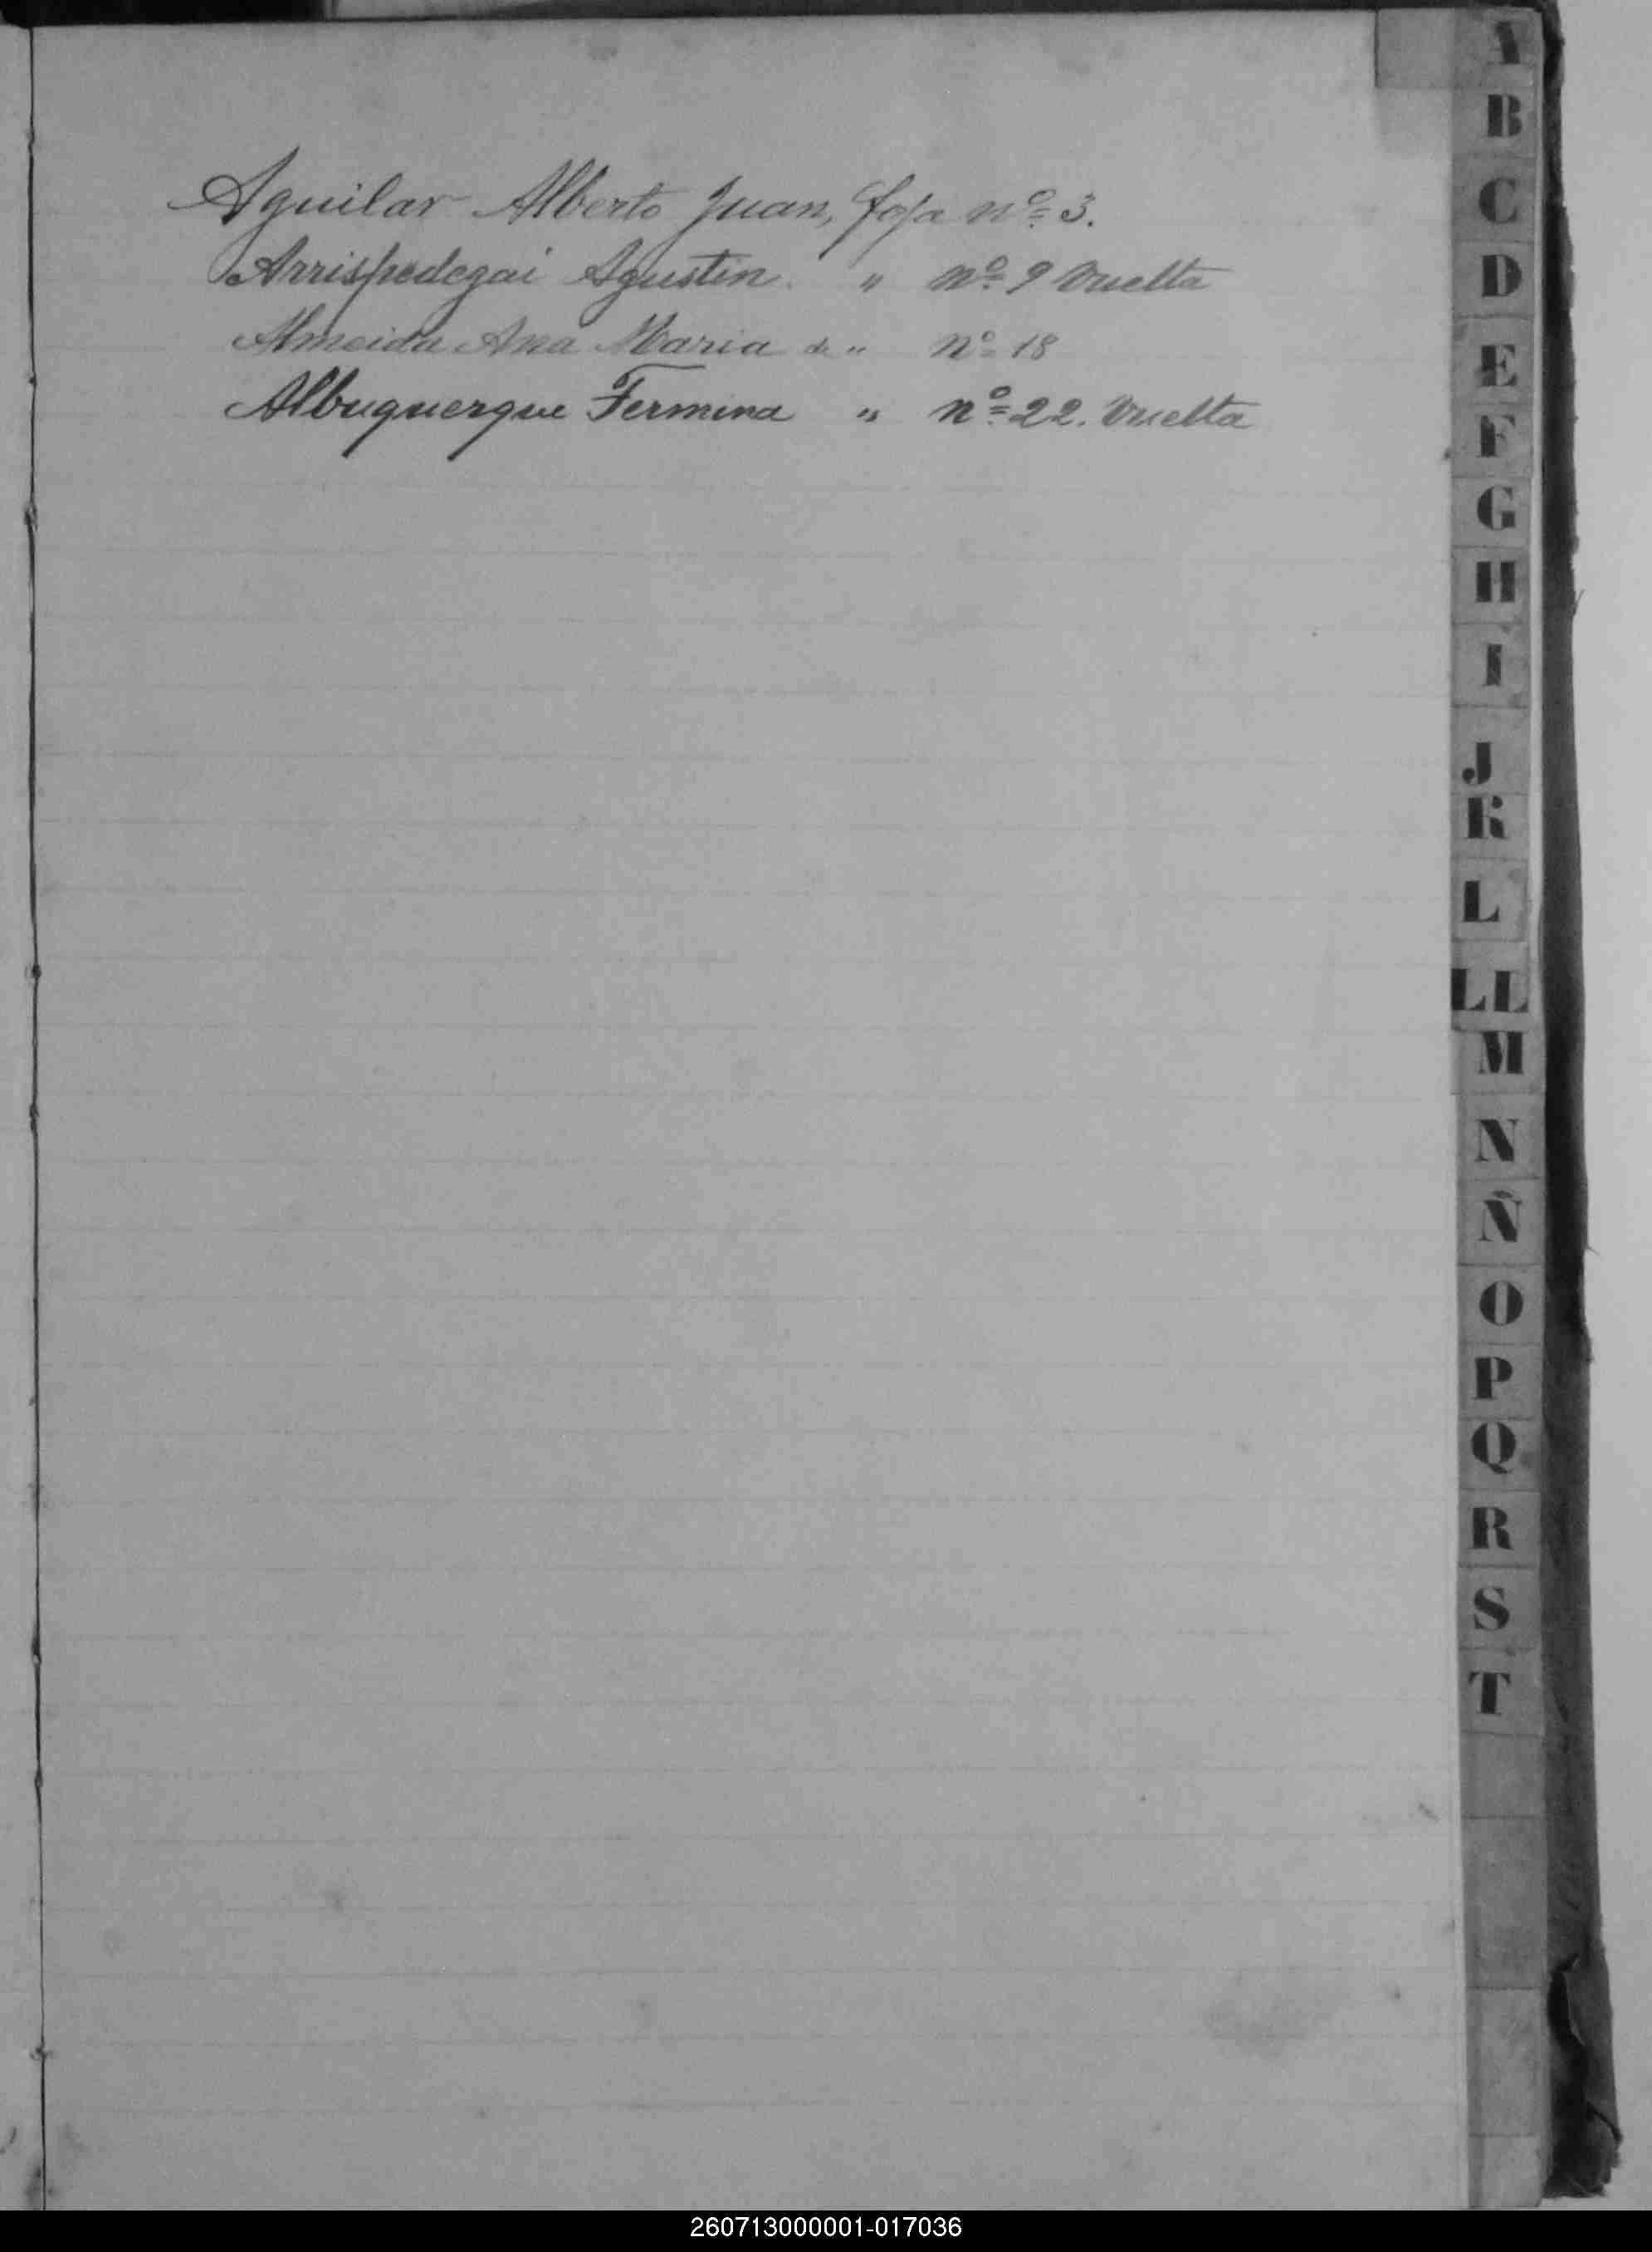 Aguilar Alberto Juan, foja nº 3.
Arrispedegai Agustin. " nº 9 Vuelta
Almeida Ana Maria de " nº 18
Albuquerque Fermina " nº 22. Vuelta
A
B
C
D
E
F
G
H
I
J
K
L
LL
M
N
Ñ
O
P
Q
R
S
T
260713000001-017036